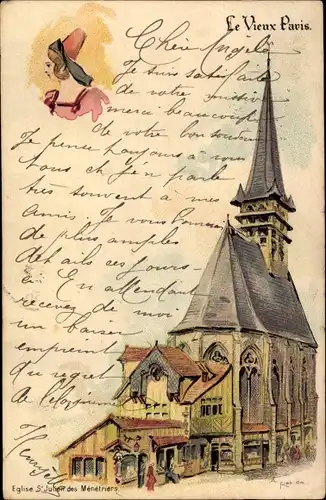 Le Vieux Paris.
Chère Angèle
Je suis satisfaite
de votre missive
merci beaucoup
de votre bon souvenir
Je pense toujours à vous
tous et j'en parle
très souvent à mes
amis. Je vous donnerai
de plus amples
détails ces jours
ci. En attendant
recevez de moi
un baiser
empreint
du regret
de l'éloignement
Eglise St Julien des Ménétriers.